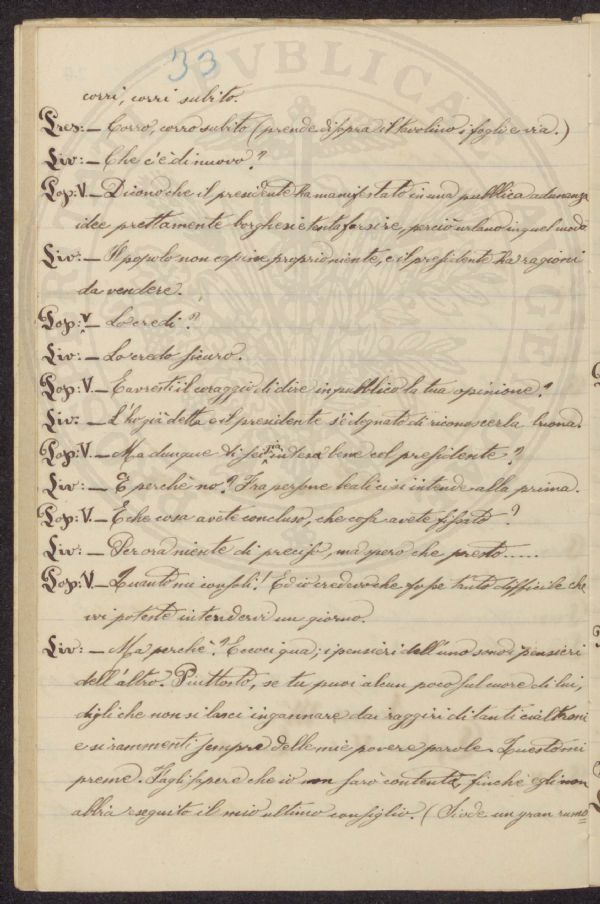 33
corri, corri subito.
Pres: — Corro, corro subito (prende di sopra il tavolino i fogli e via.)
Liv: — Che c'è di nuovo?
Pop: V. — Dicono che il presidente ha manifestato in una pubblica adunanza
idee prettamente borghesi e tenta farsi re, perciò urlano in quel modo
Liv: — Il popolo non capisce proprio niente, e il presidente ha ragioni
da vendere.
Pop: V — Lo credi?
Liv: — Lo credo sicuro.
Pop: V. — E avresti il coraggio di dire in pubblico la tua opinione?
Liv: — L'ho già detta e il presidente s'è degnato di riconoscerla buona.
Pop: V. — Ma dunque di già intesa bene col presidente?
Liv: — E perchè no? Fra persone leali ci si intende alla prima.
Pop: V. — E che cosa avete concluso, che cosa avete fissato?
Liv: — Per ora niente di preciso, ma spero che presto.....
Pop: V. — Quanto mi consoli! Ed io credevo che fosse tanto difficile che
voi poteste intendervi un giorno.
Liv: — Ma perchè? Eccoci qua; i pensieri dell'uno sono i pensieri
dell'altro. Piuttosto, se tu puoi alcun poco sul cuore di lui,
digli che non si lasci ingannare dai raggiri di tanti cialtroni
e si rammenti sempre delle mie povere parole. Questo mi
preme. Fagli sapere che io non sarò contenta, finchè egli non
abbia eseguito il mio ultimo consiglio. (Si ode un gran rumo=